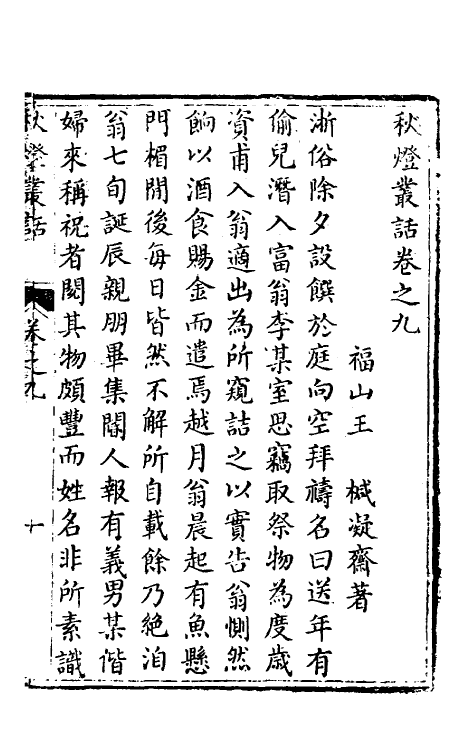 秋燈叢話卷之九
福山王 椷凝齋著
浙俗除夕設饌於庭向空拜禱名曰送年有
偷兒潛入富翁李某室思竊取祭物為度歲
資甫入翁適出為所窺詰之以實告翁惻然
餉以酒食賜金而遣焉越月翁晨起有魚懸
門楣閒後每日皆然不解所自載餘乃絶洎
翁七旬誕辰親朋畢集閽人報有義男某偕
婦來稱祝者閱其物頗豐而姓名非所素識
秋燈叢話 卷之九 十